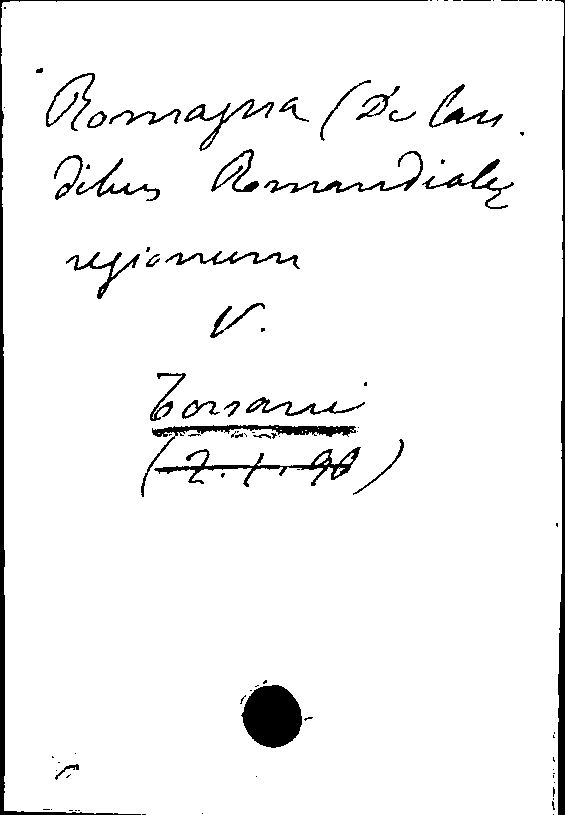 Romagna (De lau.
dibus Romandiolę
regionum
V.
Torsani
(2.1.98)